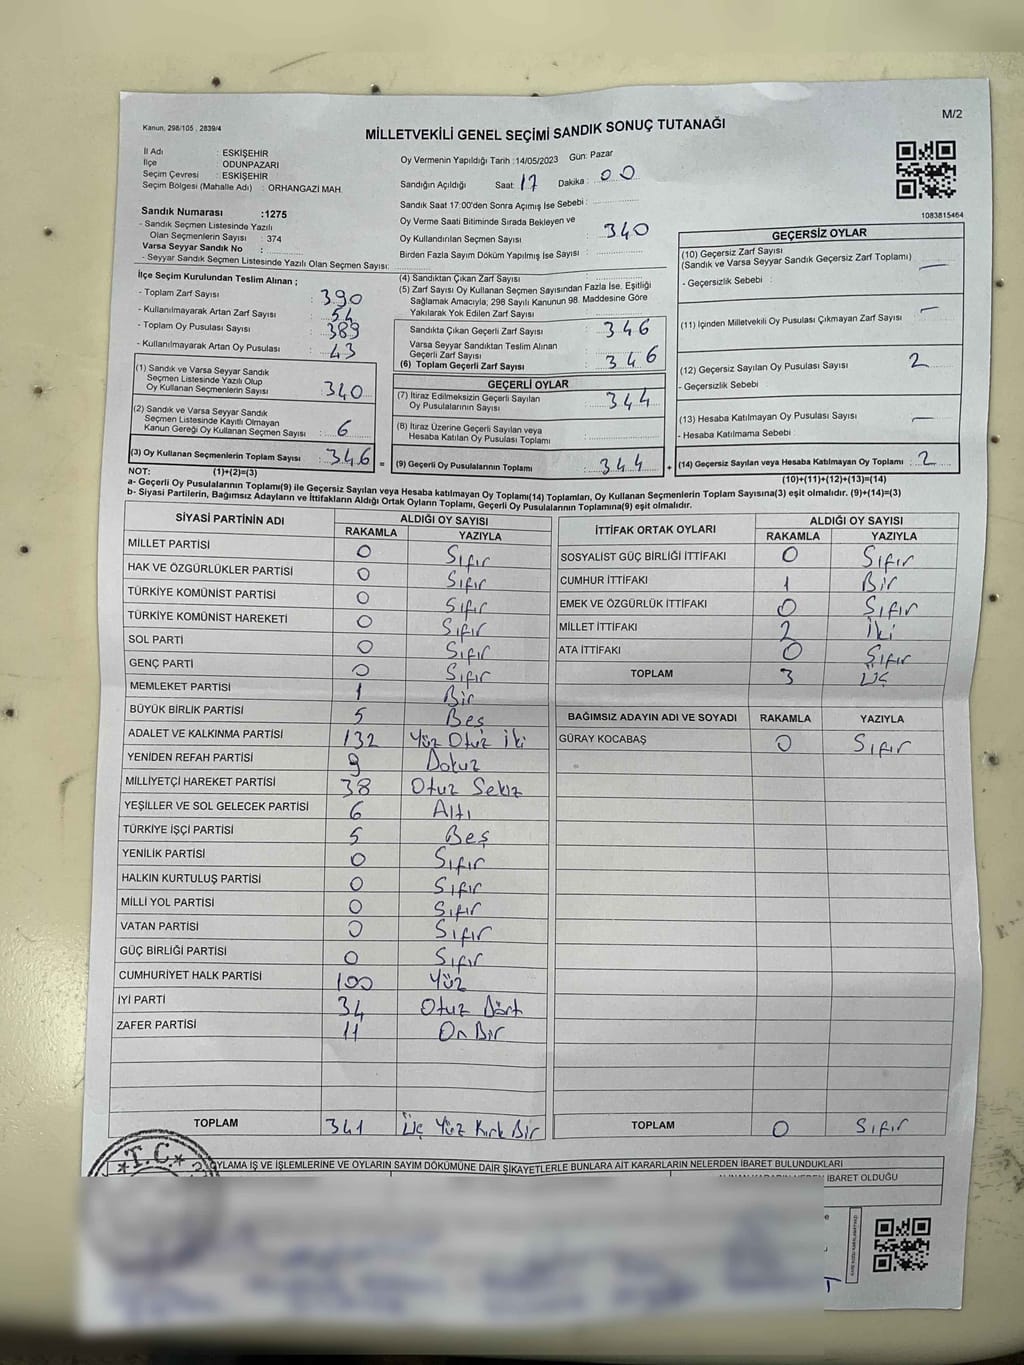 M/2
Kanun, 298/105 , 2839/4
MİLLETVEKİLİ GENEL SEÇİMİ SANDIK SONUÇ TUTANAĞI
İl Adı : ESKİŞEHİR
İlçe : ODUNPAZARI
Seçim Çevresi : ESKİŞEHİR
Seçim Bölgesi (Mahalle Adı) : ORHANGAZİ MAH.
Sandık Numarası :1275
- Sandık Seçmen Listesinde Yazılı
Olan Seçmenlerin Sayısı : 374
Varsa Seyyar Sandık No :
- Seyyar Sandık Seçmen Listesinde Yazılı Olan Seçmen Sayısı:
Oy Vermenin Yapıldığı Tarih :14/05/2023 Gün: Pazar
Sandığın Açıldığı Saat: 17 Dakika : 00
Sandık Saat 17:00'den Sonra Açımış İse Sebebi :
Oy Verme Saati Bitiminde Sırada Bekleyen ve
Oy Kullandırılan Seçmen Sayısı : 340
Birden Fazla Sayım Döküm Yapılmış İse Sayısı :
1083815464
İlçe Seçim Kurulundan Teslim Alınan ;
- Toplam Zarf Sayısı : 390
- Kullanılmayarak Artan Zarf Sayısı : 54
- Toplam Oy Pusulası Sayısı : 389
- Kullanılmayarak Artan Oy Pusulası : 43
(1) Sandık ve Varsa Seyyar Sandık
Seçmen Listesinde Yazılı Olup
Oy Kullanan Seçmenlerin Sayısı : 340
(2) Sandık ve Varsa Seyyar Sandık
Seçmen Listesinde Kayıtlı Olmayan
Kanun Gereği Oy Kullanan Seçmen Sayısı : 6
(3) Oy Kullanan Seçmenlerin Toplam Sayısı : 346
(4) Sandıktan Çıkan Zarf Sayısı :
(5) Zarf Sayısı Oy Kullanan Seçmen Sayısından Fazla İse, Eşitliği
Sağlamak Amacıyla; 298 Sayılı Kanunun 98. Maddesine Göre
Yakılarak Yok Edilen Zarf Sayısı :
Sandıkta Çıkan Geçerli Zarf Sayısı : 346
Varsa Seyyar Sandıktan Teslim Alınan
Geçerli Zarf Sayısı
(6) Toplam Geçerli Zarf Sayısı : 346
GEÇERLİ OYLAR
(7) İtiraz Edilmeksizin Geçerli Sayılan
Oy Pusulalarının Sayısı : 344
(8) İtiraz Üzerine Geçerli Sayılan veya
Hesaba Katılan Oy Pusulası Toplamı :
= (9) Geçerli Oy Pusulalarının Toplamı : 344 +
GEÇERSİZ OYLAR
(10) Geçersiz Zarf Sayısı
(Sandık ve Varsa Seyyar Sandık Geçersiz Zarf Toplamı) : —
- Geçersizlik Sebebi :
(11) İçinden Milletvekili Oy Pusulası Çıkmayan Zarf Sayısı : —
(12) Geçersiz Sayılan Oy Pusulası Sayısı : 2
- Geçersizlik Sebebi
(13) Hesaba Katılmayan Oy Pusulası Sayısı : —
- Hesaba Katılmama Sebebi :
(14) Geçersiz Sayılan veya Hesaba Katılmayan Oy Toplamı : 2
(10)+(11)+(12)+(13)=(14)
NOT: (1)+(2)=(3)
a- Geçerli Oy Pusulalarının Toplamı(9) ile Geçersiz Sayılan veya Hesaba katılmayan Oy Toplamı(14) Toplamları, Oy Kullanan Seçmenlerin Toplam Sayısına(3) eşit olmalıdır. (9)+(14)=(3)
b- Siyasi Partilerin, Bağımsız Adayların ve İttifakların Aldığı Ortak Oyların Toplamı, Geçerli Oy Pusulalarının Toplamına(9) eşit olmalıdır.
SİYASİ PARTİNİN ADI ALDIĞI OY SAYISI
RAKAMLA YAZIYLA
MİLLET PARTİSİ 0 Sıfır
HAK VE ÖZGÜRLÜKLER PARTİSİ 0 Sıfır
TÜRKİYE KOMÜNİST PARTİSİ 0 Sıfır
TÜRKİYE KOMÜNİST HAREKETİ 0 Sıfır
SOL PARTİ 0 Sıfır
GENÇ PARTİ 0 Sıfır
MEMLEKET PARTİSİ 1 Bir
BÜYÜK BİRLİK PARTİSİ 5 Beş
ADALET VE KALKINMA PARTİSİ 132 Yüz Otuz İki
YENİDEN REFAH PARTİSİ 9 Dokuz
MİLLİYETÇİ HAREKET PARTİSİ 38 Otuz Sekiz
YEŞİLLER VE SOL GELECEK PARTİSİ 6 Altı
TÜRKİYE İŞÇİ PARTİSİ 5 Beş
YENİLİK PARTİSİ 0 Sıfır
HALKIN KURTULUŞ PARTİSİ 0 Sıfır
MİLLİ YOL PARTİSİ 0 Sıfır
VATAN PARTİSİ 0 Sıfır
GÜÇ BİRLİĞİ PARTİSİ 0 Sıfır
CUMHURİYET HALK PARTİSİ 100 Yüz
İYİ PARTİ 34 Otuz Dört
ZAFER PARTİSİ 11 On Bir
TOPLAM 341 Üç Yüz Kırk Bir
İTTİFAK ORTAK OYLARI ALDIĞI OY SAYISI
RAKAMLA YAZIYLA
SOSYALIST GÜÇ BİRLİĞİ İTTİFAKI 0 Sıfır
CUMHUR İTTİFAKI 1 Bir
EMEK VE ÖZGÜRLÜK İTTİFAKI 0 Sıfır
MİLLET İTTİFAKI 2 İki
ATA İTTİFAKI 0 Sıfır
TOPLAM 3 Üç
BAĞIMSIZ ADAYIN ADI VE SOYADI RAKAMLA YAZIYLA
GÜRAY KOCABAŞ 0 Sıfır
TOPLAM 0 Sıfır
T.C.
OYLAMA İŞ VE İŞLEMLERİNE VE OYLARIN SAYIM DÖKÜMÜNE DAİR ŞİKAYETLERLE BUNLARA AİT KARARLARIN NELERDEN İBARET BULUNDUKLARI
İBARET OLDUĞU